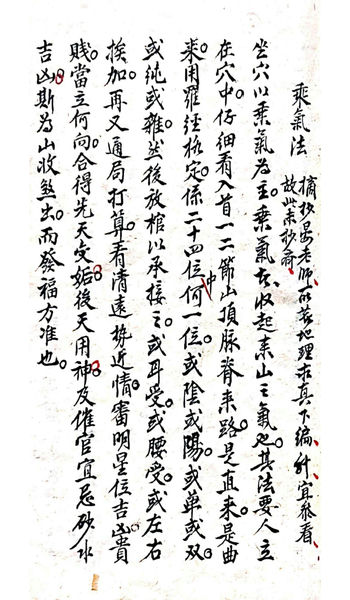 乘氣法 摘抄老师所著地理求真下編針宜參看
故此抄
坐穴以乘氣為主。乘氣者收起来山之氣也。其法要人立
在穴中仔細看入首一二節山頂脉脊来路是直来是曲
来。用羅經格定係二十四位中何一位。或陰或陽。或单或双
或純或雜。然後放棺以承接之。或耳受。或腰受。或左右
挨加。再又通局打算。看清遠势近情。審明星位吉凶貴
賤。當立何向合得先天交姤後天用神及催官宜忌砂水
吉凶。斯為山收煞出。而發福方准也。